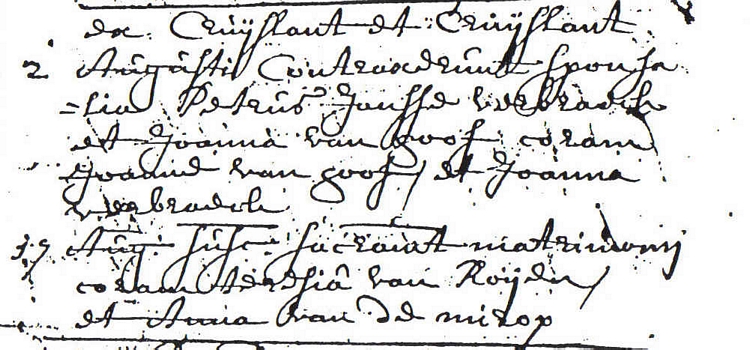 de Cruÿslant et Cruÿslant
2 Augusti Contraxerunt sponsa
=lia Petrus Jansse verbraeck
et Joanna van goof coram
Joanne van goof / et Joanna
verbraeck
17 Aug. susc. sacramt matrimonij
coram teresiâ van Roijen /
et Anna van de mirop